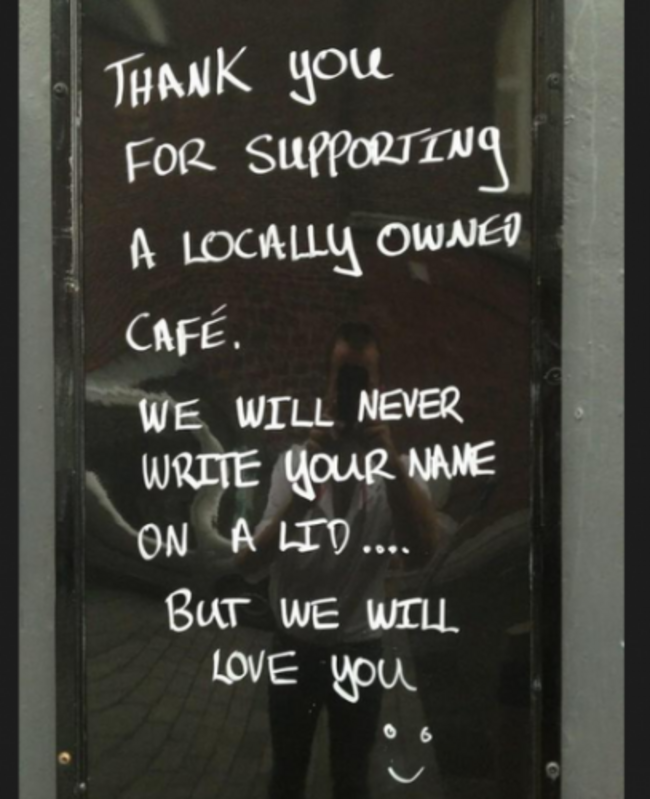 THANK you
FOR SUPPORTING
A LOCALLY OWNED
CAFÉ.
WE WILL NEVER
WRITE YOUR NAME
ON A LID....
BUT WE WILL
LOVE YOU